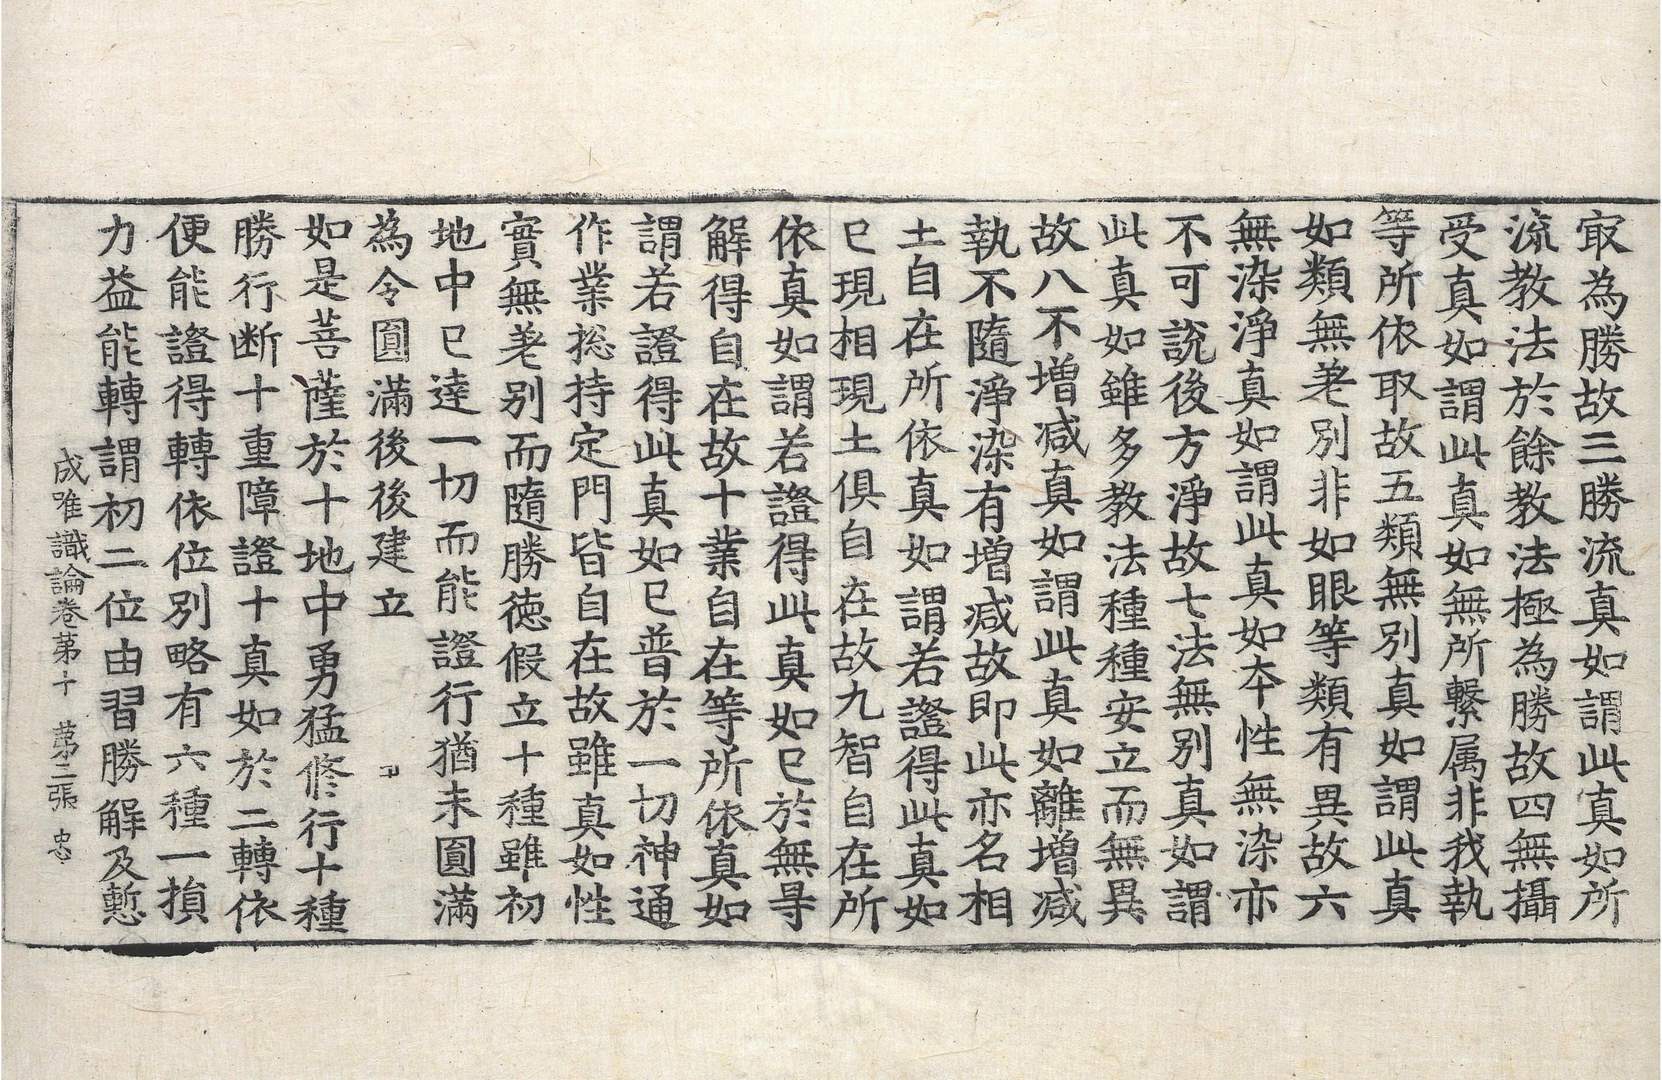 㝡為勝故三勝流真如謂此真如所
流教法於餘教法極為勝故四無攝
受真如謂此真如無所繫属非我執
等所依取故五類無別真如謂此真
如類無差別非如眼等類有異故六
無染淨真如謂此真如本性無染亦
不可說後方淨故七法無別真如謂
此真如雖多教法種種安立而無異
故八不增减真如謂此真如離增减
執不隨淨染有增减故即此亦名相
土自在所依真如謂若證得此真如
已現相現土俱自在故九智自在所
依真如謂若證得此真如已於無㝵
解得自在故十業自在等所依真如
謂若證得此真如已普於一切神通
作業捴持定門皆自在故雖真如性
實無差別而隨勝徳假立十種雖初
地中已達一切而能證行猶未圓滿
為令圓滿後後建立
如是菩薩於十地中勇猛修行十種
勝行断十重障證十真如於二轉依
便能證得轉依位別略有六種一損
力益能轉謂初二位由習勝解及慙
成唯識論卷苐十 苐二張 忠